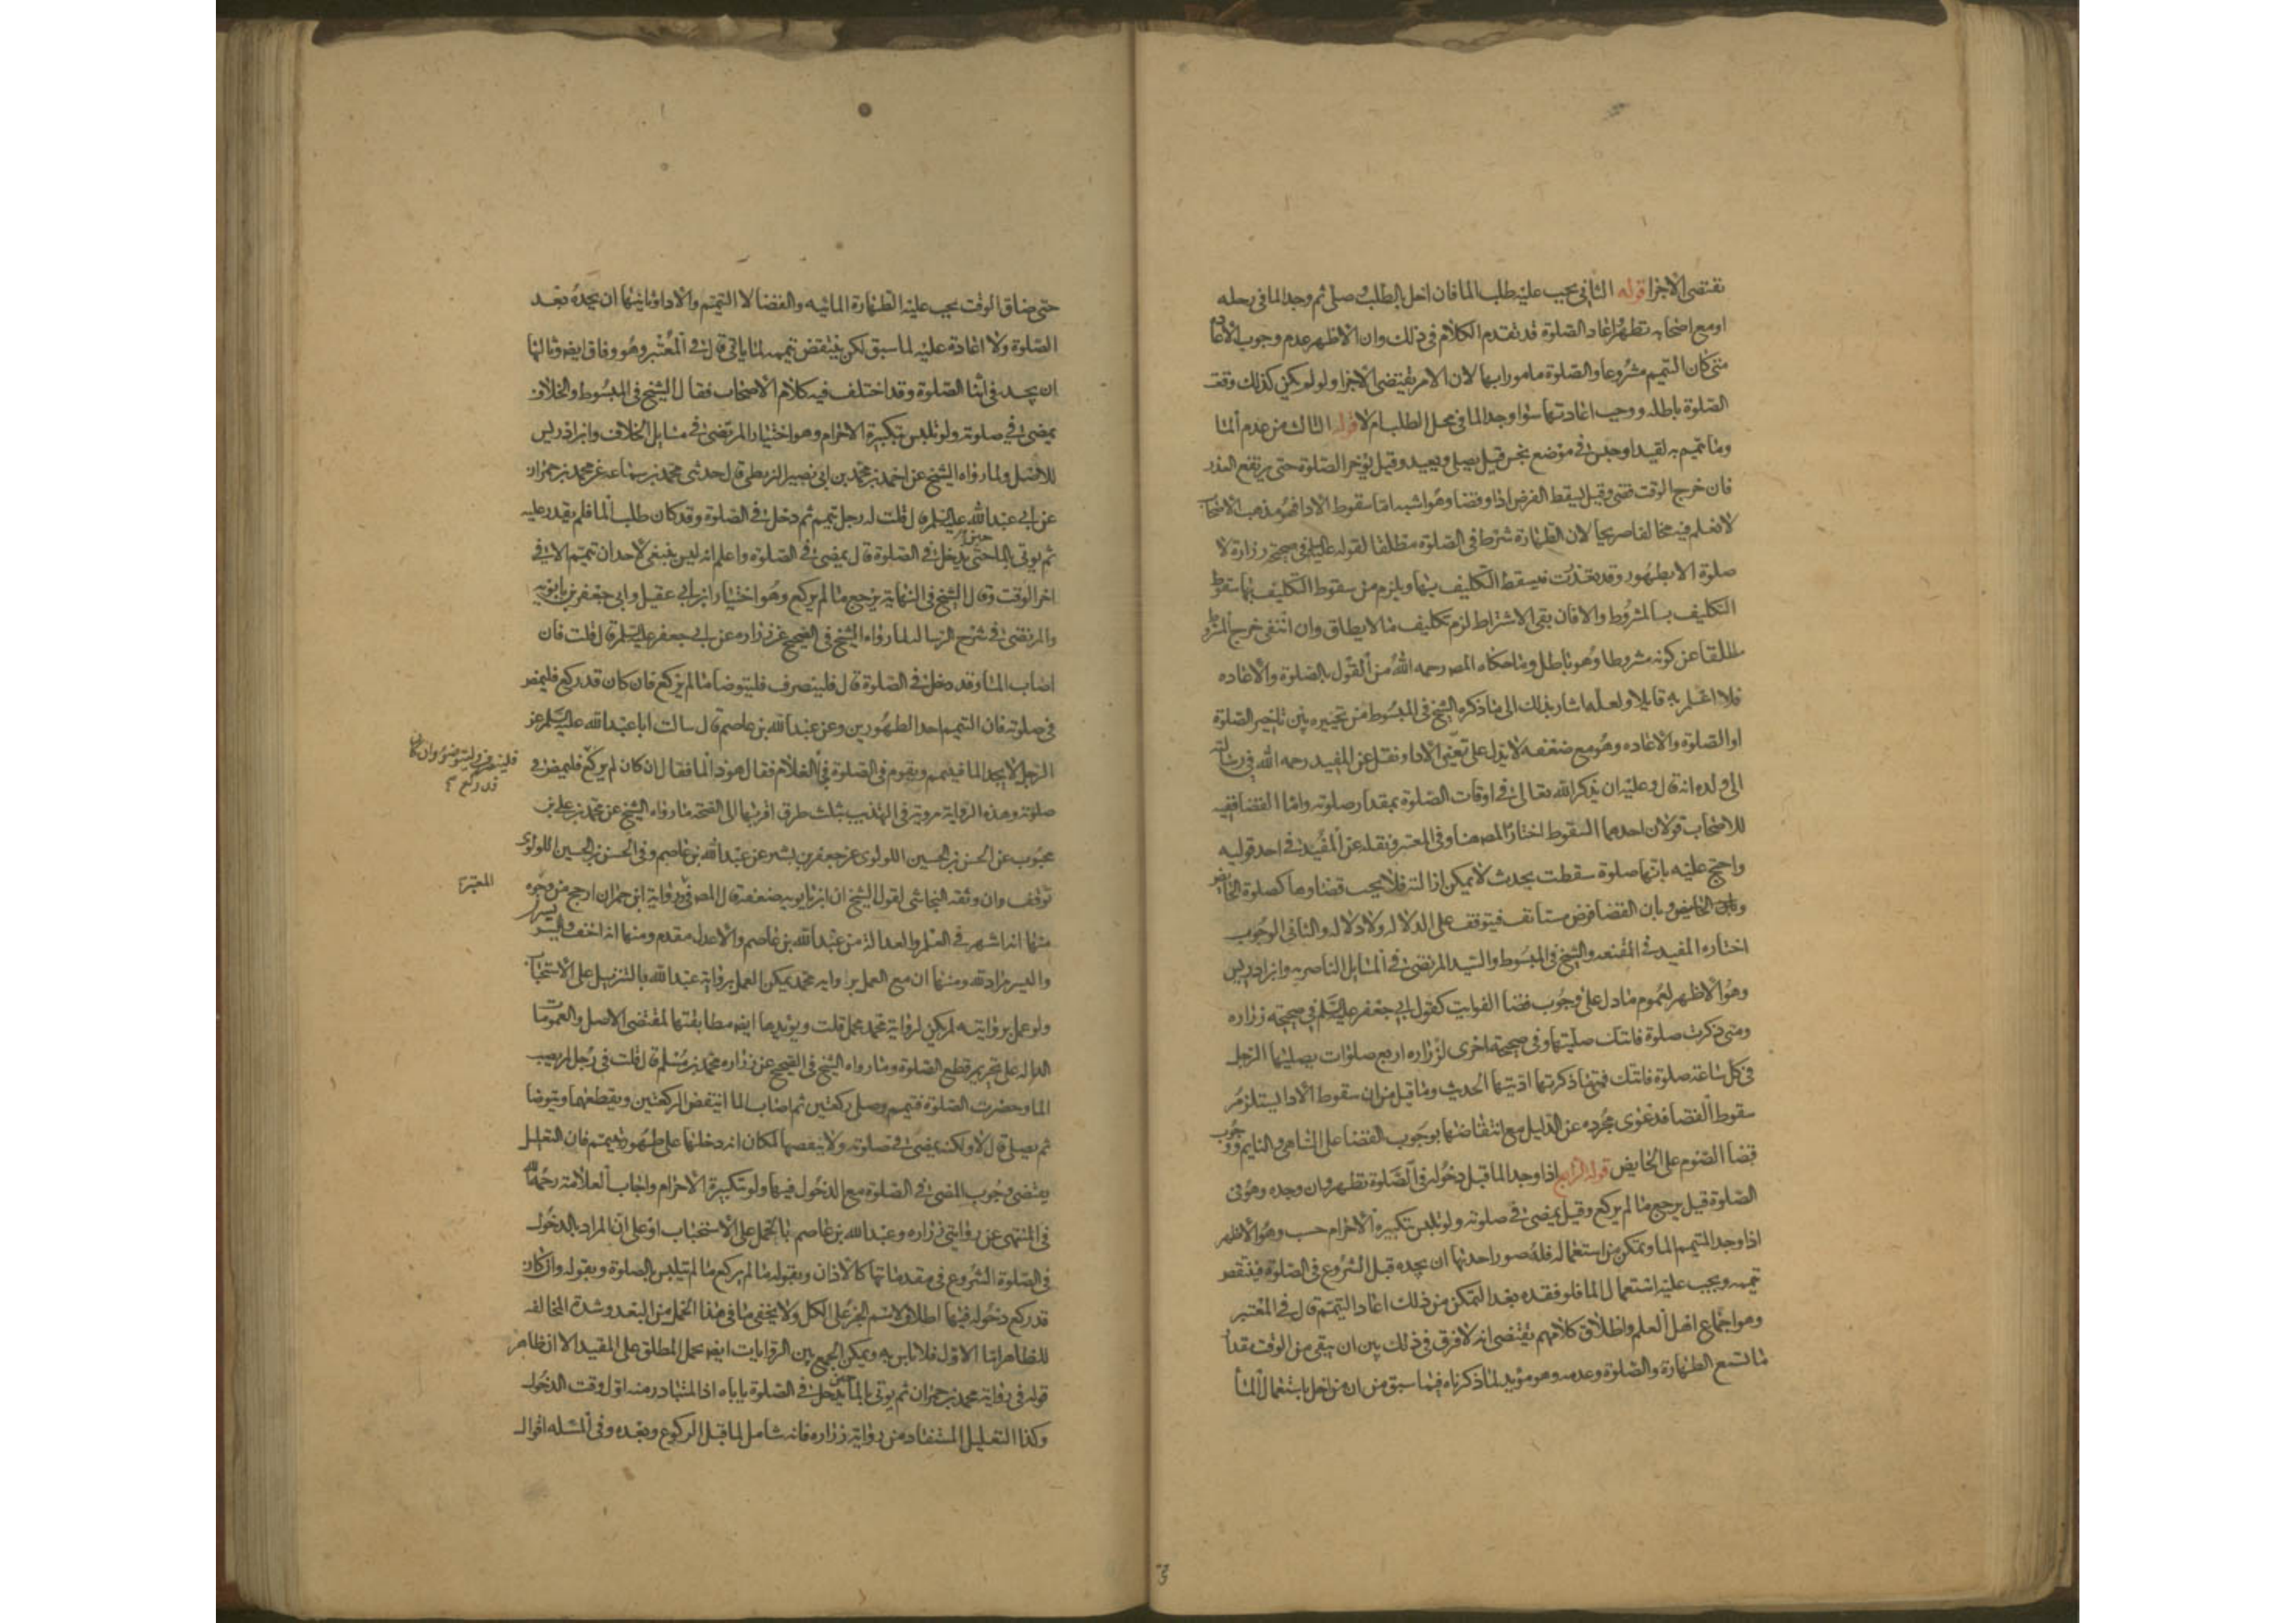 تقتضى الاجزا قوله الثانى يجب عليه طلب الما فان اخل بالطلب وصلى ثم وجد الما فى رحله
او مع اصحابه تطهر واعاد الصلوة قد تقدم الكلام فى ذلك وان الاظهر عدم وجوب الاعادة
متى كان التيمم مشروعا والصلوة مامورا بها لان الامر يقتضى الاجزا ولو لم يكن كذلك وقعت
الصلوة باطله ووجب اعادتها سوا وجد الما فى محل الطلب ام لا قوله الثالث من عدم الما
وما يتيمم به لقيد او حبس فى موضع نجس قيل يصلى ويعيد وقيل يؤخر الصلوة حتى يرتفع العذر
فان خرج الوقت قضى وقيل يسقط الفرض اداء وقضا وهو اشبه اما سقوط الادا فهو مذهب الاصحاب
لا نعلم فيه مخالفا صريحا لان الطهارة شرط فى الصلوة مطلقا لقوله عليه السلم فى صحيحة زرارة لا
صلوة الا بطهور وقد تعذرت فيسقط التكليف بها ويلزم من سقوط التكليف بها سقوط
التكليف بالمشروط والا فان بقى الاشتراط لزم تكليف ما لا يطاق وان انتفى خرج المشروط
مطلقا عن كونه مشروطا وهو باطل وما حكاه المص رحمه الله من القول بالصلوة والاعاده
فلا اعلم به قايلا ولعله اشار بذلك الى ما ذكره الشيخ فى المبسوط من تخييره بين تاخير الصلوة
او الصلوة والاعاده وهو مع ضعفه لا يدل على تعين الادا ونقل عن المفيد رحمه الله فى رسالته
الى ولده انه قال وعليه ان يذكر الله تعالى فى اوقات الصلوة بمقدار صلوته واما القضا ففيه
للاصحاب قولان احدهما السقوط اختاره المص هنا وفى المعتبر ونقله عن المفيد فى احد قوليه
واحتج عليه بانها صلوة سقطت بحدث لا يمكن ازالته فلا يجب قضاوها كصلوة الحايض
وبان القضا فرض مستانف فيتوقف على الدلاله ولا دلاله والثانى الوجوب
اختاره المفيد فى المقنعه والشيخ فى المبسوط والسيد المرتضى فى المسايل الناصريه وابن ادريس
وهو الاظهر لعموم ما دل على وجوب قضا الفوايت كقول ابى جعفر عليه السلم فى صحيحه زراره
ومتى ذكرت صلوة فاتتك صليتها وفى صحيحة اخرى لزراره اربع صلوات يصليها الرجل
فى كل ساعة صلوة فاتتك فمتى ما ذكرتها اديتها الحديث وما قيل من ان سقوط الادا يستلزم
سقوط القضا فدعوى مجرده عن الدليل مع انتقاضها بوجوب القضا على الساهى والنايم ووجوب
قضا الصوم على الحايض قوله الرابع اذا وجد الما قبل دخوله فى الصلوة تطهر وان وجده وهو فى
الصلوة قيل يرجع ما لم يركع وقيل يمضى فى صلوته ولو تلبس بتكبيرة الاحرام حسب وهو الاظهر
اذا وجد المتيمم الما وتمكن من استعماله فله صور احدها ان يجده قبل الشروع فى الصلوة فينتقض
تيممه ويجب عليه استعمال الما فلو فقده بعد التمكن من ذلك اعاد التيمم قال فى المعتبر
وهو اجماع اهل العلم واطلاق كلامهم يقتضى انه لا فرق فى ذلك بين ان يبقى من الوقت مقدار
ما يسع الطهارة والصلوة وعدمه وهو مؤيد لما ذكرناه فيما سبق من ان من اخل باستعمال الما
حتى ضاق الوقت يجب عليه الطهارة المائيه والقضا لا التيمم والادا وثانيها ان يجده بعد
الصلوة ولا اعادة عليه لما سبق لكن ينتقض تيممه لما ياتى قال فى المعتبر وهو وفاق ايضا وثالثها
ان يجده فى اثنا الصلوة وقد اختلف فيه كلام الاصحاب فقال الشيخ فى المبسوط والخلاف
يمضى فى صلوته ولو تلبس بتكبيرة الاحرام وهو اختيار المرتضى فى مسايل الخلاف وابن ادريس
للاصل ولما رواه الشيخ عن احمد بن محمد بن ابى نصر البزنطى قال حدثنى محمد بن سماعه عن محمد بن حمران
عن ابى عبد الله عليه السلم قال قلت له رجل تيمم ثم دخل فى الصلوة وقد كان طلب الما فلم يقدر عليه
ثم يوتى بالما حين يدخل فى الصلوة قال يمضى فى الصلوة واعلم انه ليس ينبغى لاحد ان يتيمم الا فى
اخر الوقت وقال الشيخ فى النهاية يرجع ما لم يركع وهو اختيار ابن ابى عقيل وابى جعفر بن بابويه
والمرتضى فى شرح الرسالة لما رواه الشيخ فى الصحيح عن زراره عن ابى جعفر عليه السلم قال قلت فان
اصاب الما وقد دخل فى الصلوة قال فلينصرف فليتوضا ما لم يركع فان كان قد ركع فليمض
فى صلوته فان التيمم احد الطهورين وعن عبد الله بن عاصم قال سالت ابا عبد الله عليه السلم عن
الرجل لا يجد الما فيتيمم ويقوم فى الصلوة فجأ الغلام فقال هو ذا الما فقال ان كان لم يركع فليمض فى
فلينصرف وليتوضؤ وان كان
قد ركع
صلوته وهذه الرواية مروية فى التهذيب بثلث طرق اقربها الى الصحة ما رواه الشيخ عن محمد بن على بن
محبوب عن الحسن بن الحسين اللولوى عن جعفر بن بشير عن عبد الله بن عاصم وفى الحسن بن الحسين اللولوى
توقف وان وثقه النجاشى لقول الشيخ ان ابن بابويه ضعفه قال المص فى رواية ابن حمران ارجح من وجوه
المعتبر
منها انه اشهر فى العلم والعدالة من عبد الله بن عاصم والاعدل مقدم ومنها انه اخف وايسر
واليسر مراد لله ومنها ان مع العمل برواية محمد يمكن العمل برواية عبد الله بالتنزيل على الاستحباب
ولو عمل بروايته لم يكن لرواية محمد محمل قلت ويؤيدها ايضا مطابقتها لمقتضى الاصل والعمومات
الداله على تحريم قطع الصلوة وما رواه الشيخ فى الصحيح عن زراره محمد بن مسلم قال قلت فى رجل لم يصب
الما وحضرت الصلوة فتيمم وصلى ركعتين ثم اصاب الما اينتقض الركعتين ويقطعهما ويتوضا
ثم يصلى قال لا ولكنه يمضى فى صلوته ولا ينقضها لمكان انه دخلها على طهور بتيمم فان التعليل
يقتضى وجوب المضى فى الصلوة مع الدخول فيها ولو بتكبيرة الاحرام واجاب العلامة رحمه الله
فى المنتهى عن روايتى زراره وعبد الله بن عاصم بالحمل على الاستحباب او على ان المراد بالدخول
فى الصلوة الشروع فى مقدماتها كالاذان وبقوله ما لم يركع ما لم يتلبس بالصلوة وبقوله وان كان
قد ركع دخوله فيها اطلاقا لاسم الجزء على الكل ولا يخفى ما فى هذا الحمل من البعد وشدة المخالفه
للظاهر اما الاول فلا باس به ويمكن الجمع بين الروايات ايضا بحمل المطلق على المقيد الا ان ظاهر
قوله فى رواية محمد بن حمران ثم يوتى بالما حين يدخل فى الصلوة ياباه اذ المتبادر منه اول وقت الدخول
وكذا التعليل المستفاد من رواية زراره فانه شامل لما قبل الركوع وبعده وفى المسله اقوال